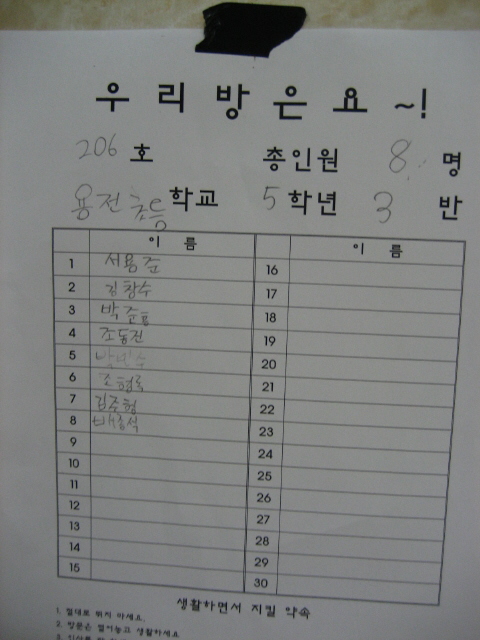 우리방은요~!
206 호 총인원 8 명
용전초등학교 5학년 3 반
이 름 이 름
1 서용준 16
2 김창수 17
3 박준 18
4 조동진 19
5 20
6 21
7 김주형 22
8 배종석 23
9 24
10 25
11 26
12 27
13 28
14 29
15 30
생활하면서 지킬 약속
1. 절대로 뛰지 마세요.
2. 방문은 열어놓고 생활하세요